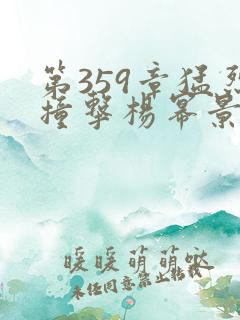 第359章猛烈
撞撃楊幂景
暖暖萌萌哒
未经同意禁止转载